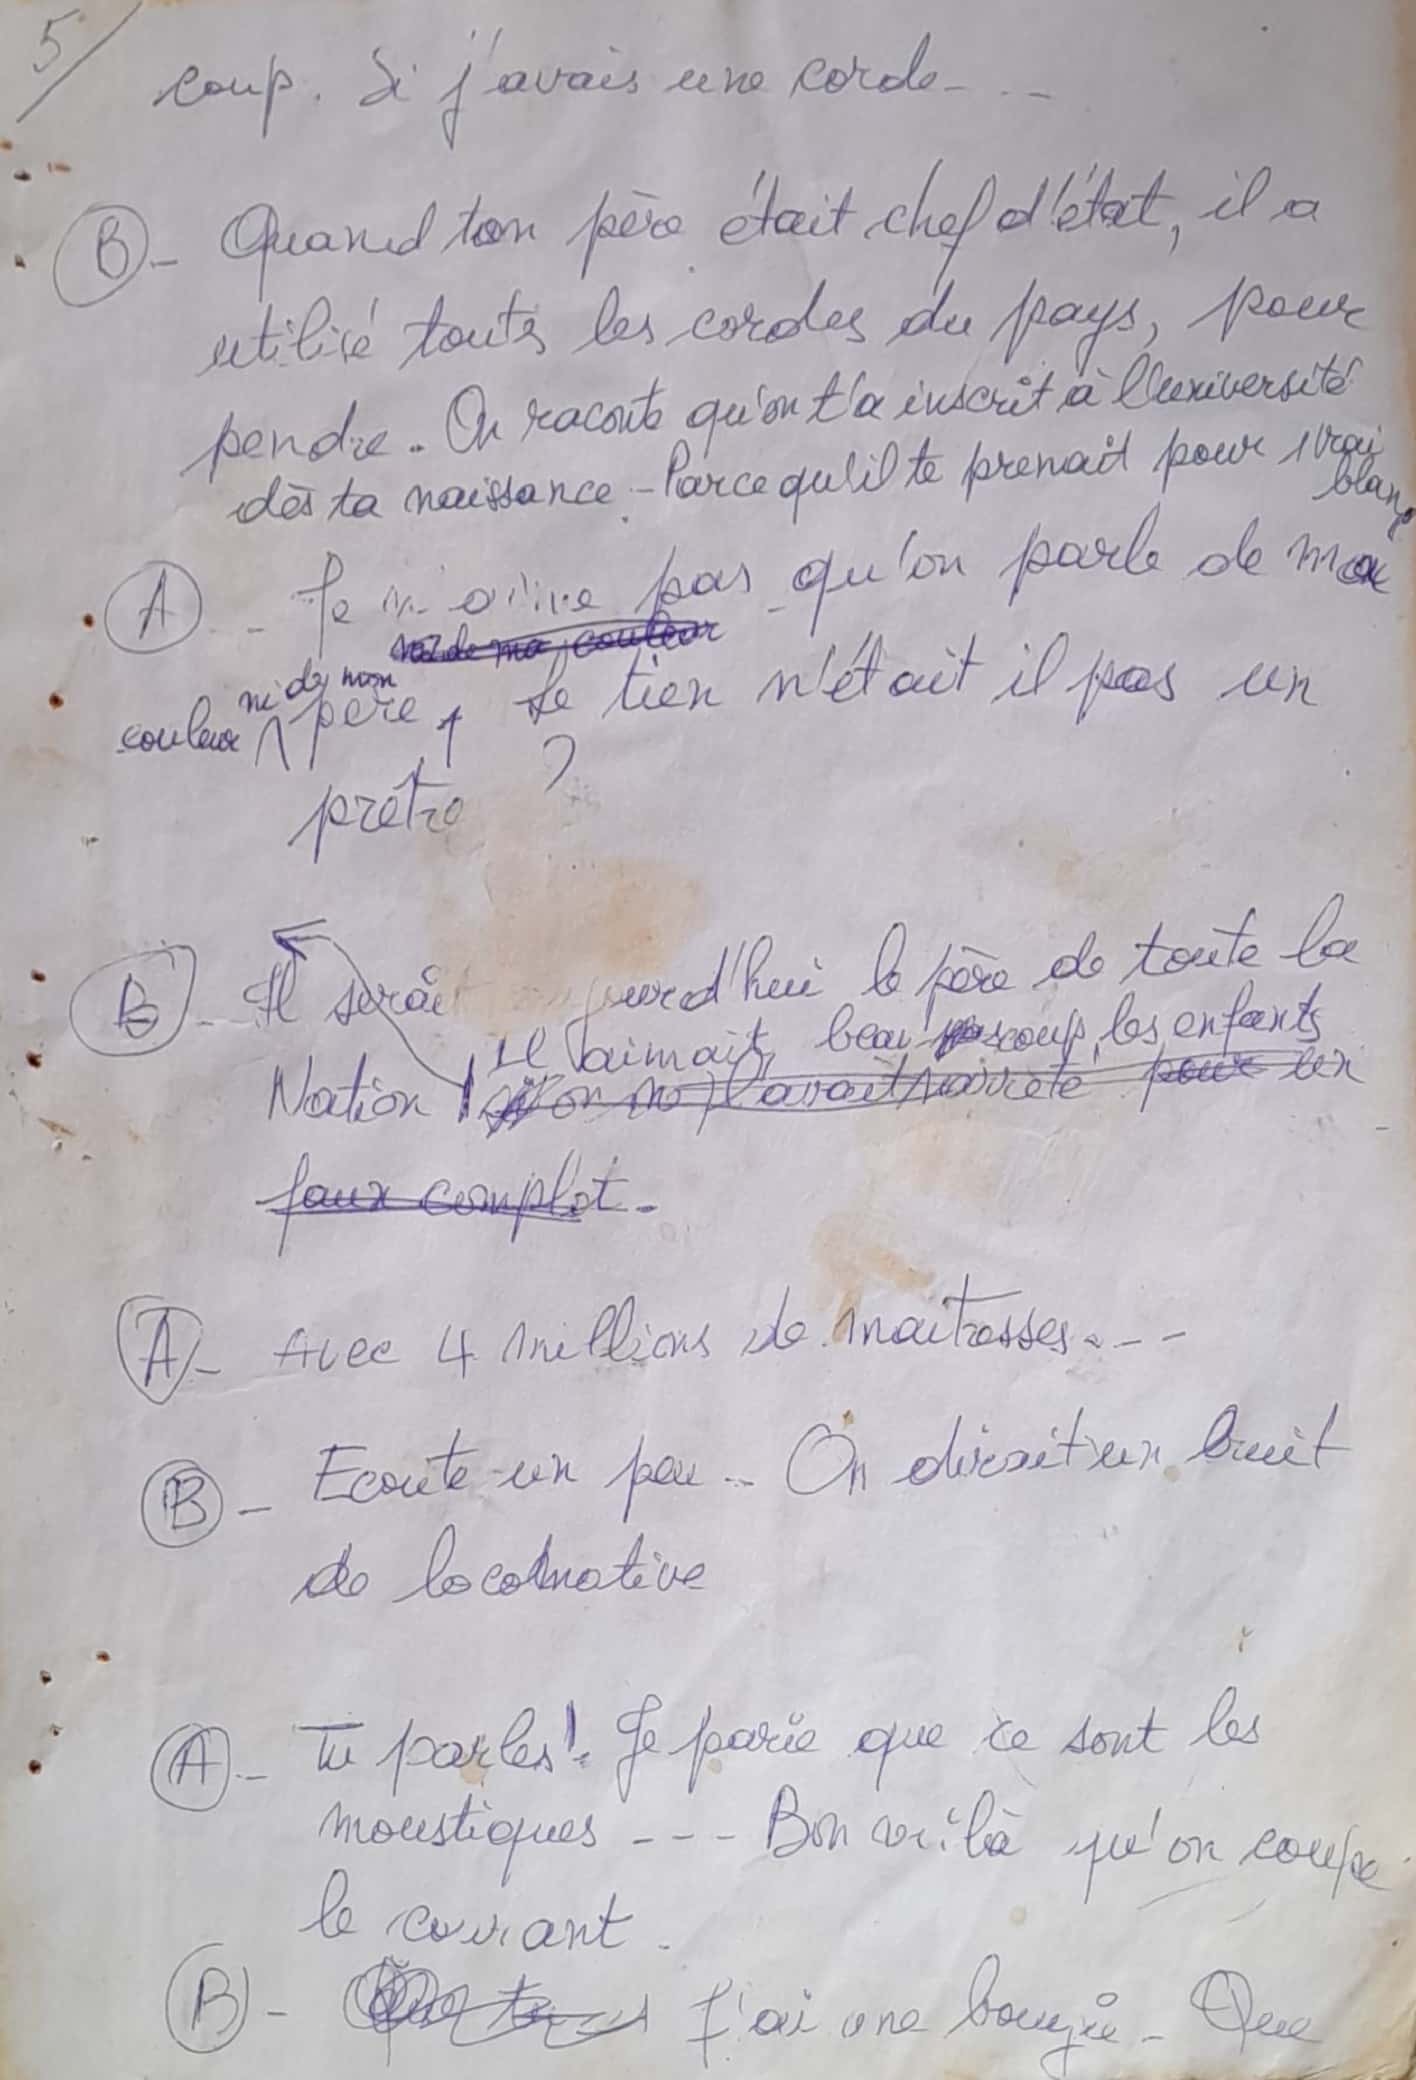 5/
coup. Si j'avais une corde - - -
B - Quand ton père était chef d'état, il a
utilisé toutes les cordes du pays, pour
pendre. On raconte qu'on t'a inscrit à l'université
dès ta naissance - Parcequ'il te prenait pour 1 vrai
blanc
A - Je n'aime pas qu'on parle de ma
ni de ma couleur
couleur ni de mon père, Le tien n'était il pas un
prêtre ?
B - Il serait aujourd'hui le père de toute la
Il aimait beaucoup les enfants
Nation ! si on ne l'avait arrêté pour un
faux complot -
A - Avec 4 millions de maitresses - - -
B - Ecoute un peu - On dirait un bruit
de locomotive
A - Tu parles ! Je parie que ce sont les
moustiques - - - Bon voilà qu'on coupe
le courant.
B - J'ai une bougie - Que